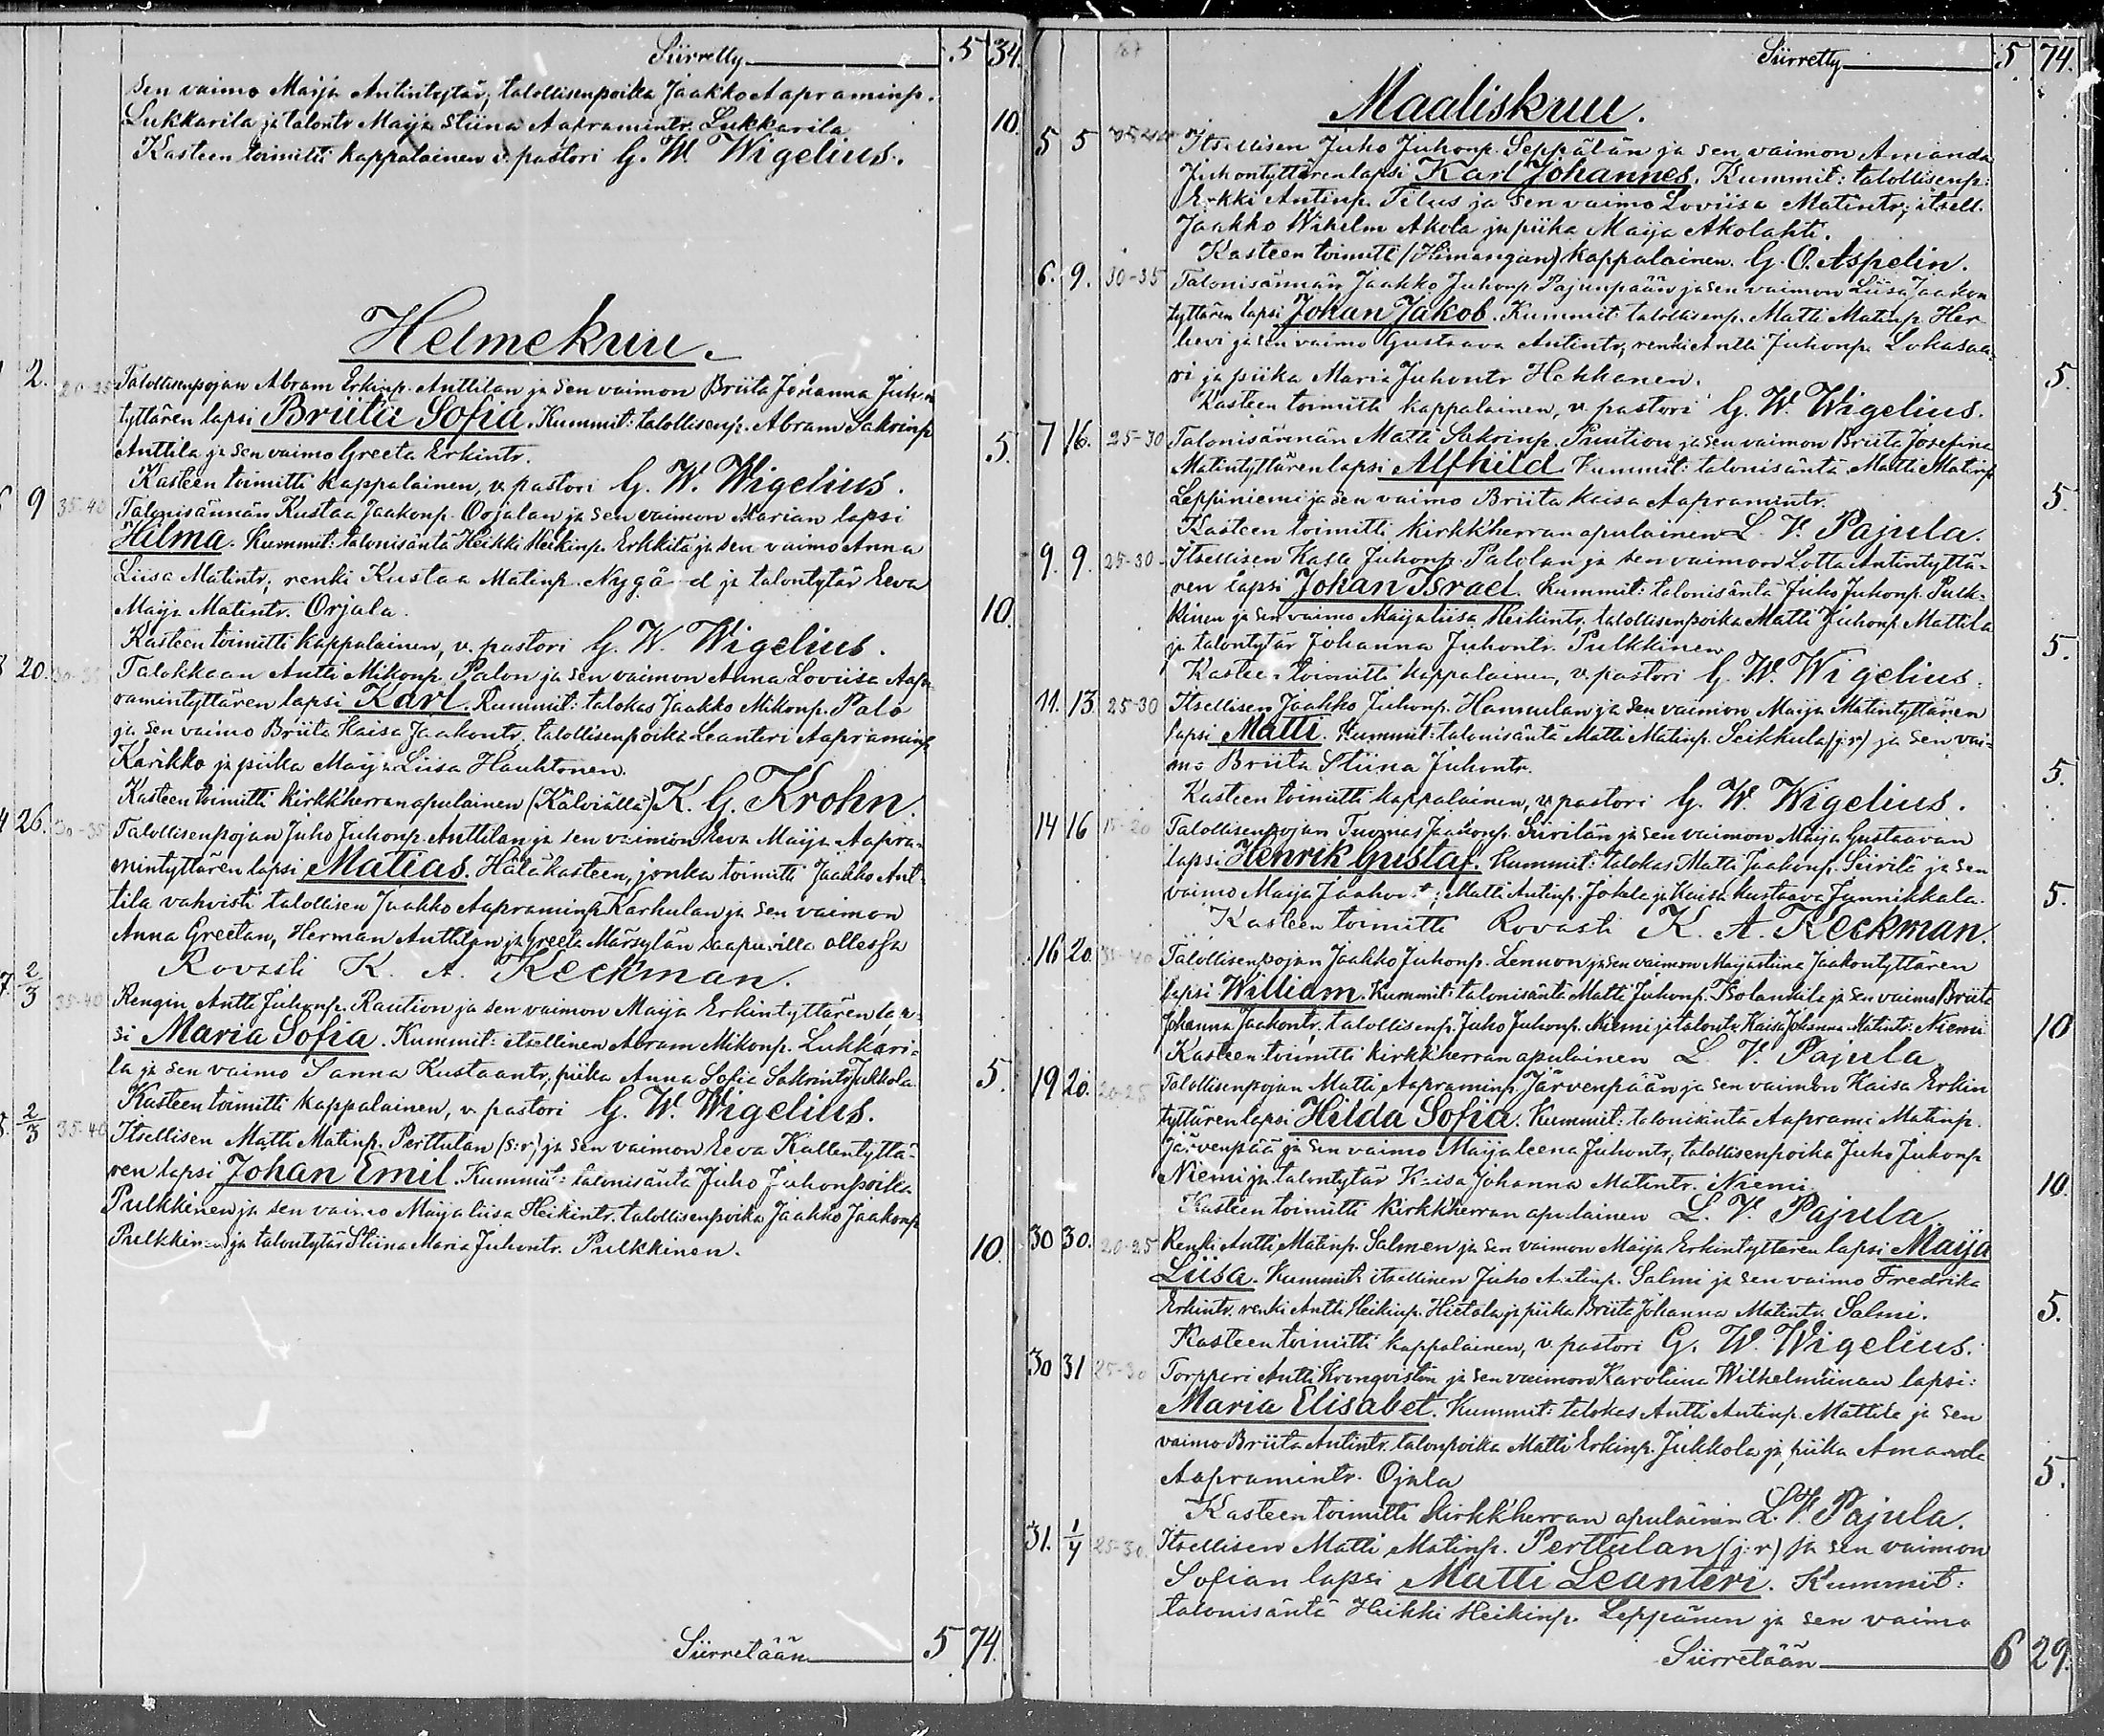 Siirretty 5 34.
sen vaimo Maija Antintytär; talollisenpoika Jaakko Aapraminp.
Lukkarila ja talontr Maija Stiina Aapramintr. Lukkarila 10.
Kasteen toimitti kappalainen v. pastori G. W. Wigelius.
Helmekuu.
2. 20-25 Talollisenpojan Abram Erkinp. Anttilan ja sen vaimon Briita Johanna Juhon
tyttären lapsi Briita Sofia. Kummit: talollisenp. Abram Sakrinp
Anttila ja sen vaimo Greeta Erkintr. 5.
Kasteen toimitti kappalainen, v. pastori G. W. Wigelius.
9 35-40 Talonisännän Kustaa Jaakonp. Orjalan ja sen vaimon Marian lapsi
Hilma. Kummit: talonisäntä Heikki Heikinp. Erkkilä ja sen vaimo Anna
Liisa Matintr; renki Kustaa Matinp. Nygård ja talontytär Eeva
Maija Matintr. Orjala. 10.
Kasteen toimitti kappalainen, v. pastori G. W. Wigelius.
20. 30-35 Talokkaan Antti Mikonp. Palon ja sen vaimon Anna Loviisa Aap-
ramintyttären lapsi Karl. Kummit: talokas Jaakko Mikonp. Palo
ja sen vaimo Briita Kaisa Jaakontr, talollisenpoika Leanteri Aapraminp
Karikko ja piika Maija Liisa Hauhtonen.
Kasteen toimitti kirkkherranapulainen (Kälviällä) K. G. Krohn.
26. 30-35 Talollisenpojan Juho Juhonp. Anttilan ja sen vaimon Eeva Maija Aapra-
mintyttären lapsi Matias. Hätäkasteen, jonka toimitti Jaakko Ant-
tila vahvisti talollisen Jaakko Aapraminp Karhulan ja sen vaimon
Anna Greetan, Herman Anttilan ja Greeta Märsylän saapuvilla ollessa
Rovasti K. A. Keckman.
7. 2/3 35-40 Rengin Antti Juhonp. Raution ja sen vaimon Maija Erkintyttären lap-
si Maria Sofia. Kummit: itsellinen Abram Mikonp. Lukkari-
la ja sen vaimo Sanna Kustaantr, piika Anna Sofia Sakrintr Jukkola. 5.
Kasteen toimitti kappalainen, v. pastori G. W. Wigelius.
2/3 35-40 Itsellisen Matti Matinp. Perttulan (s:r) ja sen vaimon Eeva Kallentyttä-
ren lapsi Johan Emil. Kummit: talonisäntä Juho Juhonpoika
Pulkkinen ja sen vaimo Maija liisa Heikintr. talollisenpoika Jaakko Jaakonp
Pulkkinen ja talontytär Stiina Maria Juhontr. Pulkkinen. 10.
Siirretään 5 74.
Siirretty 5 74.
Maaliskuu.
5 5 Itsellisen Juho Juhonp. Seppälän ja sen vaimon Amanda
Juhontyttären lapsi Karl Johannes. Kummit: talollisenp:
Erkki Antinp. Tilus ja sen vaimo Loviisa Matintr; itsell.
Jaakko Wihelm Akola ja piika Maija Akolahti.
Kasteen toimitti (Himangan) kappalainen. G. O. Aspelin.
6. 9. 30-35 Talonisännän Jaakko Juhonp. Pajunpään ja sen vaimon Liisa Jaakon
tyttären lapsi Johan Jakob. Kummit: talollisenp. Matti Matinp. Her
hevi ja sen vaimo Gustaava Antintr, renki Antti Juhonp. Lohasaa-
ri ja piika Maria Juhontr Hakkanen. 5.
Kasteen toimitti kappalainen, v. pastori G. W. Wigelius.
7 16. 25-30 Talonisännän Matti Sakrinp. Puution ja sen vaimon Briita Josefina
Matintyttären lapsi Alfhild. Kummit: talonisäntä Matti Matinp
Leppiniemi ja sen vaimo Briita Kaisa Aapramintr. 5.
Kasteen toimitti kirkkherran apulainen L. V. Pajula.
9. 9. 25-30 Itsellisen Kalle Juhonp. Palolan ja sen vaimon Lotta Antintyttä-
ren lapsi Johan Israel. Kummit: talonisäntä Juho Juhonp. Pulk-
kinen ja sen vaimo Maija liisa Heikintr, talollisenpoika Matti Juhonp Mattila
ja talontytär Johanna Juhontr. Pulkkinen 5.
Kasteen toimitti kappalainen, v. pastori G. W. Wigelius.
11. 13 25-30 Itsellisen Jaakko Juhonp. Hannulan ja sen vaimon Maija Matintyttären
lapsi Matti. Kummit: talonisäntä Matti Matinp. Peikkula (j:r) ja sen vai-
mo Briita Stiina Juhontr. 5.
Kasteen toimitti kappalainen, v. pastori G. W. Wigelius.
14 16 15-20 Talollisenpojan Tuomas Jaakonp. Siirilän ja sen vaimon Maija Gustaavan
lapsi Henrik Gustaf. Kummit: talokas Matti Jaakonp. Siirilä ja sen
vaimo Maija Jaakontr; Matti Antinp. Jokela ja Kaisa Kustaava Junnikkala. 5.
Kasteen toimitti Rovasti K. A. Keckman.
16 20. 35-40 Talollisenpojan Jaakko Juhonp. Lennon ja sen vaimon Maija stiina Jaakontyttären
lapsi William. Kummit: talonisäntä Matti Juhonp. Isolankila ja sen vaimo Briita
Johanna Jaakontr, talollisenp. Juho Juhonp. Niemi ja talontr Kaisa Johanna Matintr. Niemi 10
Kasteen toimitti kirkkherran apulainen L. V. Pajula
19 20. 20-25 Talollisenpojan Matti Aapraminp. Järvenpään ja sen vaimon Kaisa Erkin
tyttären lapsi Hilda Sofia. Kummit: talonisäntä Aaprami Matinp.
Järvenpää ja sen vaimo Maija leena Juhontr, talollisenpoika Juho Juhonp
Niemi ja talontytär Kaisa Johanna Matintr. Niemi 10.
Kasteen toimitti kirkkherran apulainen L. V. Pajula
30 30. 20-25 Renki Antti Matinp. Salmen ja sen vaimon Maija Erkintyttären lapsi Maija
Liisa. Kummit: itsellinen Juho Antinp. Salmi ja sen vaimo Fredrika
Erkintr. renki Antti Heikinp. Hietala ja piika Briita Johanna Matintr. Salmi. 5.
Kasteen toimitti kappalainen, v. pastori G. W. Wigelius.
30 31 25-30 Torppari Antti Kronqvistin ja sen vaimon Karoliina Wilhelmiinan lapsi:
Maria Elisabet. Kummit: talokas Antti Antinp. Mattila ja sen
vaimo Briita Antintr. talonpoika Matti Erkinp. Jukkola ja piika Amanda
Aapramintr. Ojala 5.
Kasteen toimitti kirkkherran apulainen L. V. Pajula.
31. 1/4 25-30. Itsellisen Matti Matinp. Perttulan (j:r) ja sen vaimon
Sofian lapsi Matti Leanteri. Kummit:
talonisäntä Heikki Heikinp. Leppänen ja sen vaimo
Siirretään 6 29.